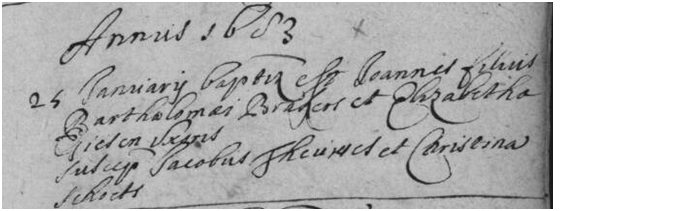 Annus 1683
25 Januarij baptiz est Joannis filius
Bartholomaei et Elizabetha
Giesen uxoris
suscep Jacobus Theunes et Christina
Schoets